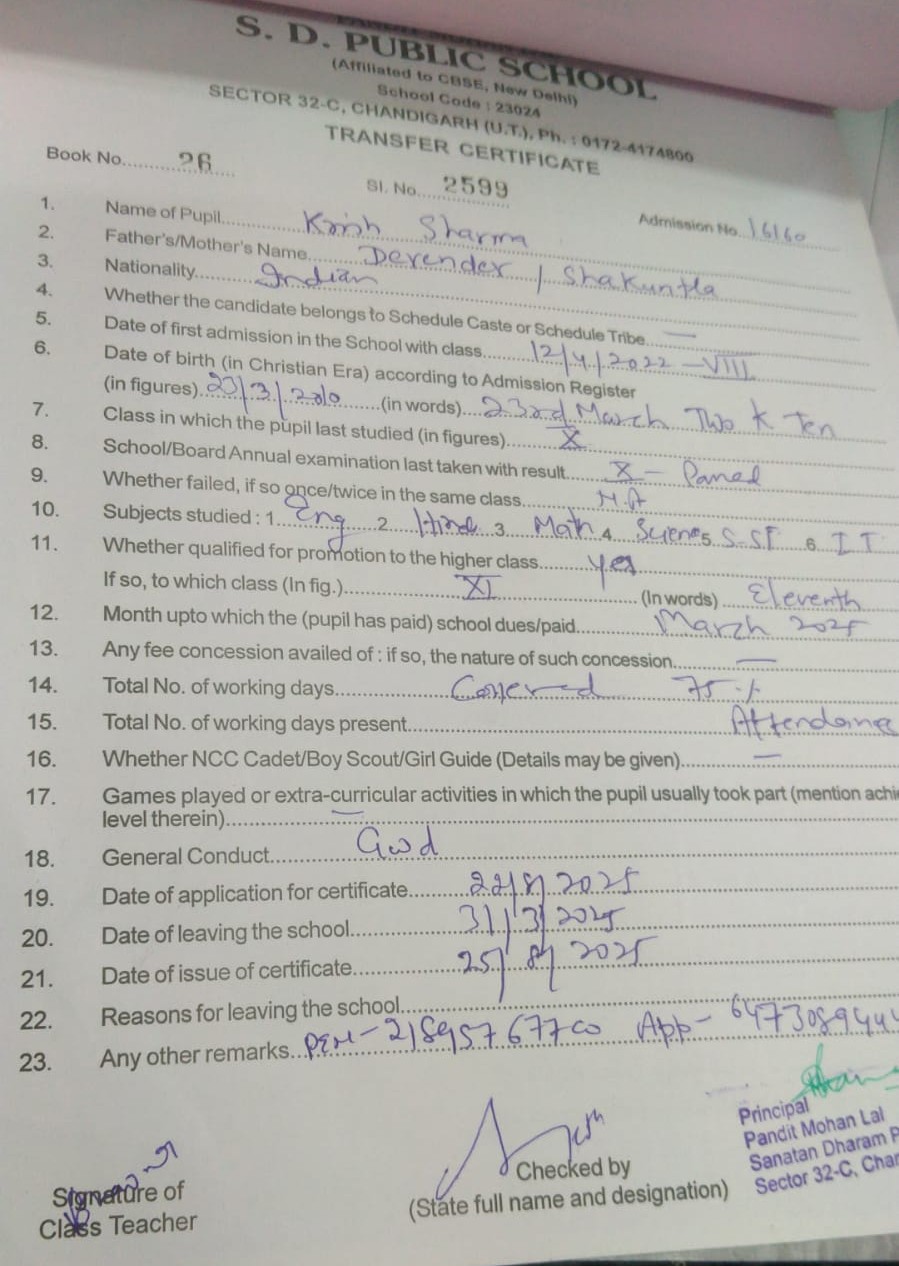 S. D. PUBLIC SCHOOL
(Affiliated to CBSE, New Delhi)
School Code : 23024
SECTOR 32-C, CHANDIGARH (U.T.), Ph. : 0172-4174800
TRANSFER CERTIFICATE
Book No. 26
Sl. No. 2599
Admission No. 16160
1. Name of Pupil Krish Sharma
2. Father's/Mother's Name Devender / Shakuntla
3. Nationality Indian
4. Whether the candidate belongs to Schedule Caste or Schedule Tribe —
5. Date of first admission in the School with class 12/4/2022 - VIII
6. Date of birth (in Christian Era) according to Admission Register
(in figures) 23/3/2010 (in words) 23rd March Two K Ten
7. Class in which the pupil last studied (in figures) X
8. School/Board Annual examination last taken with result X - Passed
9. Whether failed, if so once/twice in the same class N.A
10. Subjects studied : 1 Eng 2 Hindi 3 Math 4 Science 5 S.ST 6 IT
11. Whether qualified for promotion to the higher class Yes
If so, to which class (In fig.) XI (In words) Eleventh
12. Month upto which the (pupil has paid) school dues/paid March 2025
13. Any fee concession availed of : if so, the nature of such concession —
14. Total No. of working days Covered 75 %
15. Total No. of working days present Attendance
16. Whether NCC Cadet/Boy Scout/Girl Guide (Details may be given) —
17. Games played or extra-curricular activities in which the pupil usually took part (mention achi
level therein) —
18. General Conduct Good
19. Date of application for certificate 22/8/2025
20. Date of leaving the school 31/3/2025
21. Date of issue of certificate 25/8/2025
22. Reasons for leaving the school
23. Any other remarks PEN - 21895767700 App -
Principal
Pandit Mohan Lal
Sanatan Dharam P
Sector 32-C, Chan
Checked by
(State full name and designation)
Signature of
Class Teacher